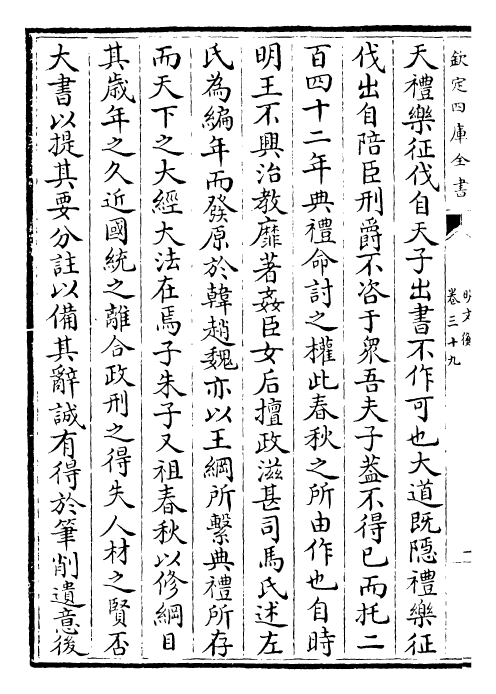 欽定四庫全書
明文衡
卷三十九
二
天禮樂征伐自天子出書不作可也大道既隱禮樂征
伐出自陪臣刑爵不咨于衆吾夫子葢不得已而托二
百四十二年典禮命討之權此春秋之所由作也自時
明王不興治教靡著姦臣女后擅政滋甚司馬氏述左
氏為編年而發原於韓趙魏亦以王綱所繫典禮所存
而天下之大經大法在焉子朱子又祖春秋以修綱目
其歲年之久近國統之離合政刑之得失人材之賢否
大書以提其要分註以備其辭誠有得於筆削遺意後